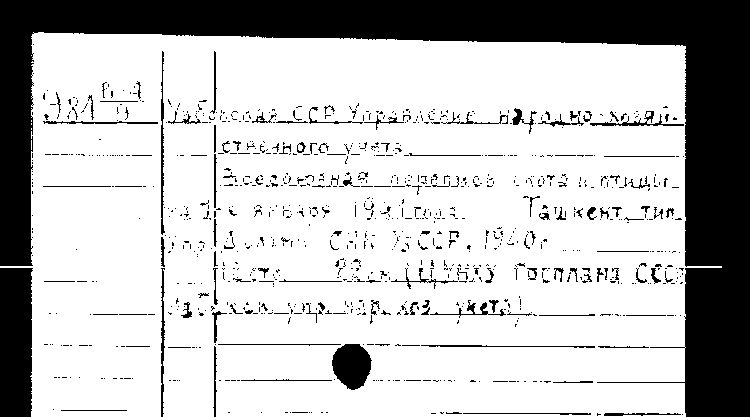 Э81 Узбекская ССР Управление народно-хозяй-
ственного учета.
Всесоюзная перепись скота и птицы
на 1-е января 1941 года. Ташкент, тип.
Упр. Делами СНК УзССР, 1940 г.
12 стр. 22 см. (ЦУНХУ Госплана СССР
Узбекск. упр. нар. хоз. учета).